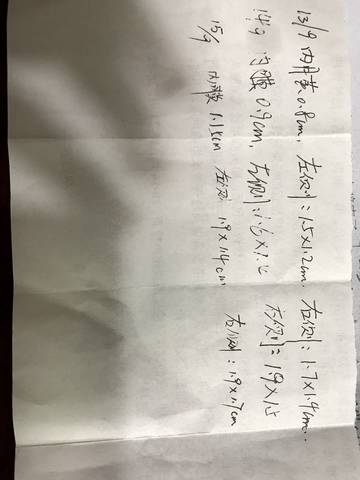 13/9 内膜 0.8cm, 左侧:1.5×1.2cm. 右侧:1.7×1.4cm.
14/9 内膜 0.9cm, 左侧: 右侧:1.9×1.5
15/9 内膜 1.15cm 左侧: 1.9×1.4cm 右侧:1.9×1.7cm